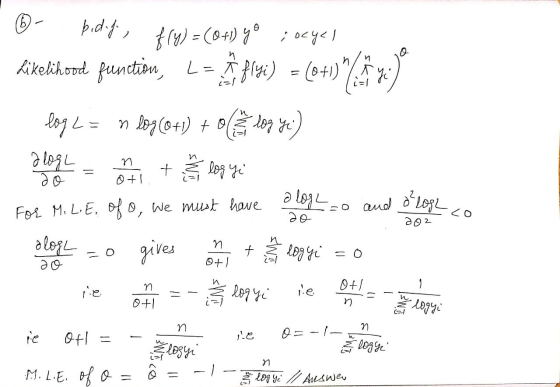 (b)- p.d.f., f(y) = (θ+1) y^θ ; 0<y<1
Likelihood function, L = π_{i=1}^{n} f(yi) = (θ+1)^n (π_{i=1}^{n} yi)^θ
log L = n log(θ+1) + θ(Σ_{i=1}^{n} log yi)
∂logL/∂θ = n/(θ+1) + Σ_{i=1}^{n} log yi
For M.L.E. of θ, we must have ∂logL/∂θ = 0 and ∂²logL/∂θ² < 0
∂logL/∂θ = 0 gives n/(θ+1) + Σ_{i=1}^{n} log yi = 0
i.e n/(θ+1) = - Σ_{i=1}^{n} log yi i.e (θ+1)/n = - 1/(Σ_{i=1}^{n} log yi)
ie θ+1 = - n/(Σ_{i=1}^{n} log yi) i.e θ = -1 - n/(Σ_{i=1}^{n} log yi)
M.L.E. of θ = θ̂ = -1 - n/(Σ_{i=1}^{n} log yi) // Answer